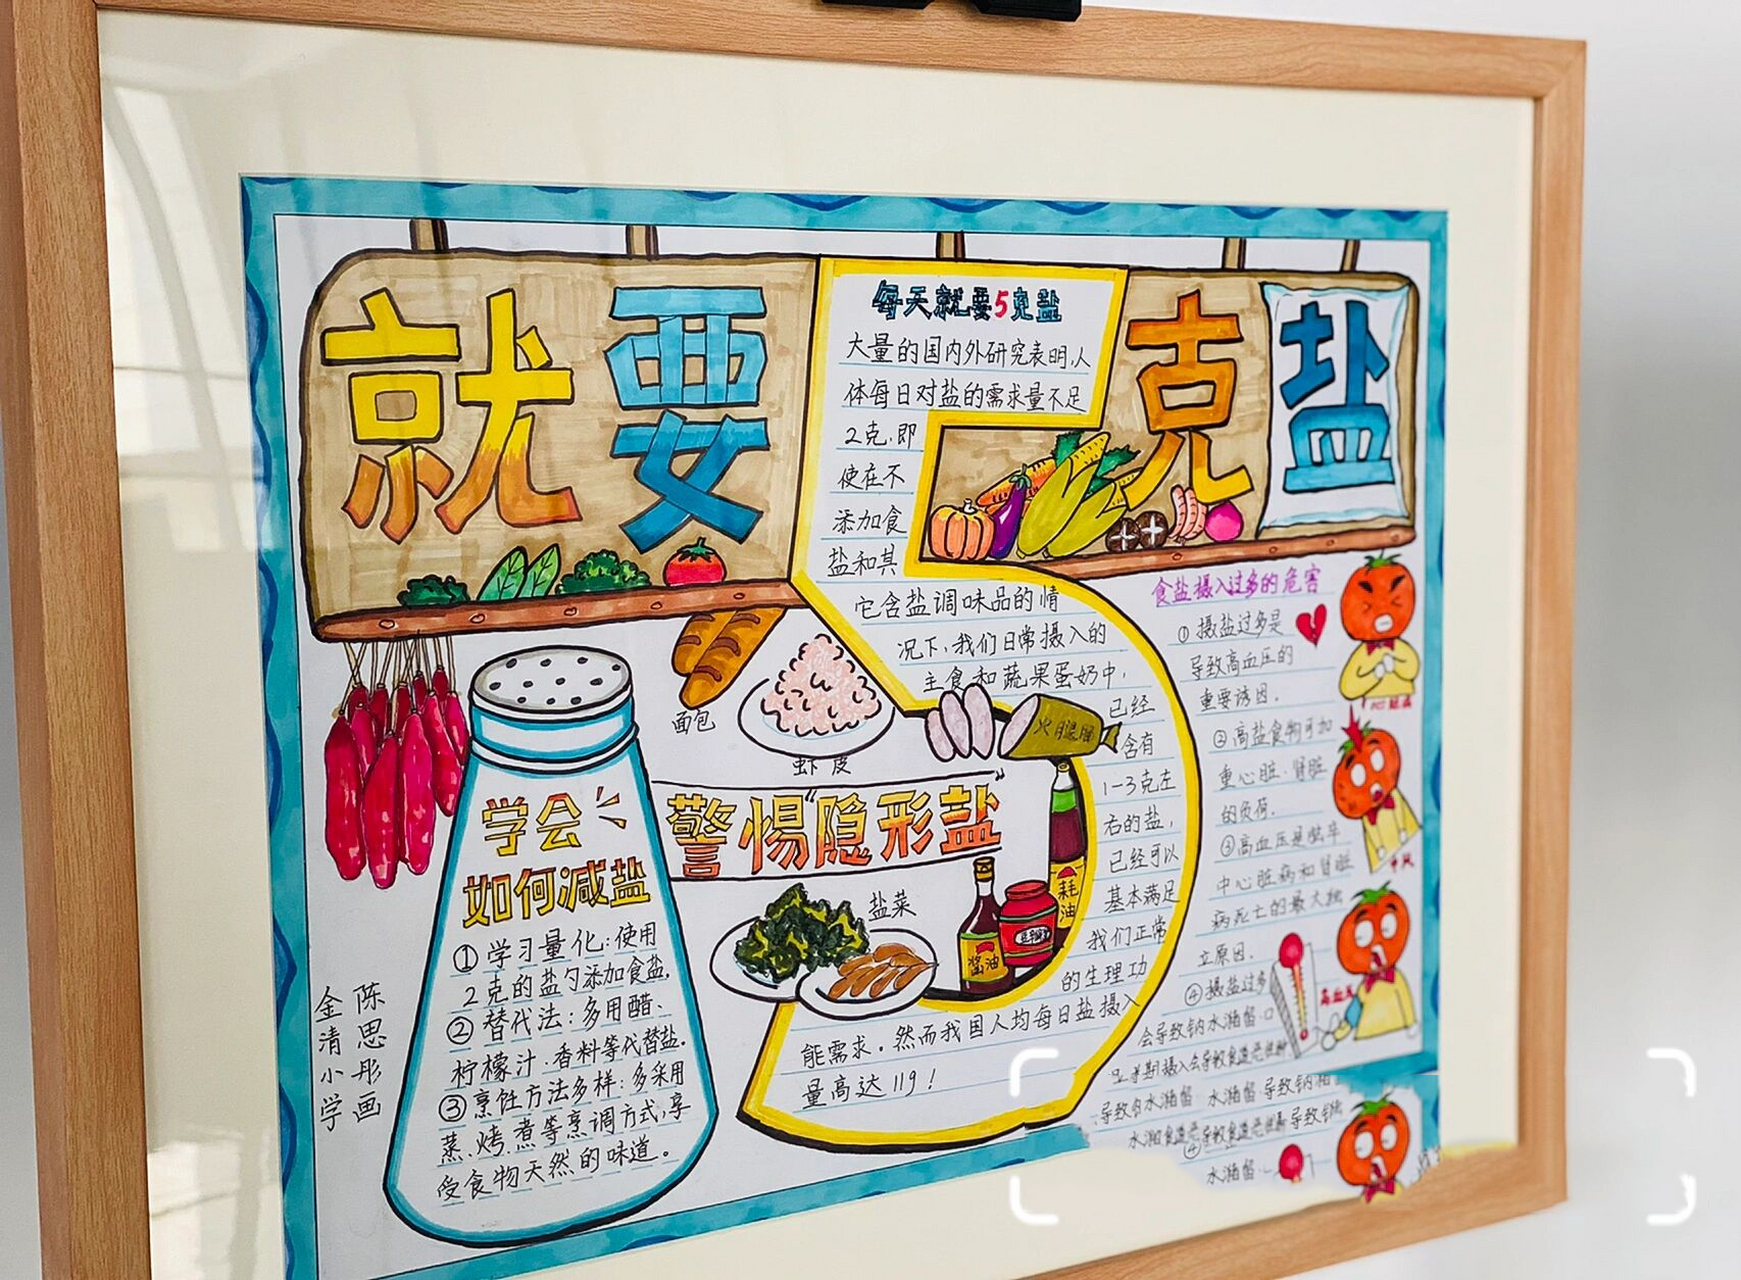 就要5克盐
每天就要5克盐
大量的国内外研究表明,人
体每日对盐的需求量不足
2克,即
使在不
添加食
盐和其
它含盐调味品的情
况下,我们日常摄入的
主食和蔬果蛋奶中,
已经
含有
1-3克左
右的盐,
已经可以
基本满足
我们正常
的生理功
能需求。然而我国人均每日盐摄入
量高达119!
面包
虾皮
火腿肠
警惕"隐形盐"
盐菜
酱油
耗油
学会
如何减盐
①学习量化:使用
2克的盐勺添加食盐,
②替代法:多用醋、
柠檬汁、香料等代替盐.
③烹饪方法多样:多采用
蒸、烤、煮等烹调方式,享
受食物天然的味道。
金清小学
陈思彤画
食盐摄入过多的危害
①摄盐过多是
导致高血压的
重要诱因.
②高盐食物可加
重心脏、肾脏
的负荷.
③高血压是脑卒
中心脏病和肾脏
病死亡的最大独
立原因.
④摄盐过多
会导致钠水潴留
水潴留